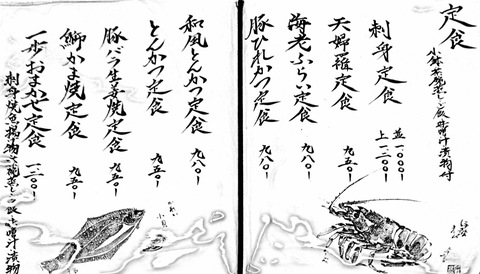 定食
小鉢 茶碗蒸し 御飯 味噌汁 漬物付
刺身定食
並 一、〇〇〇-
上 一、三〇〇-
天婦羅定食 九五〇-
海老ふらい定食 九八〇-
豚ひれかつ定食 九八〇-
和風とんかつ定食 九八〇-
とんかつ定食 九五〇-
豚バラ生姜焼定食 九五〇-
鰤かま焼定食 九五〇-
一歩おまかせ定食 一、三〇〇-
刺身 焼魚 揚物 茶碗蒸し 御飯 味噌汁 漬物
かれい
小貝